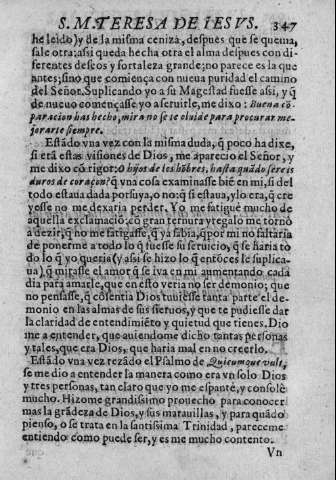 S. M. TERESA DE IESVS. 347
he leido) y de la misma ceniza, despues que se quema,
sale otra; assi queda hecha otra el alma despues con di-
ferentes desseos y fortaleza grande; no parece es la que
antes; sino que comiença con nueua puridad el camino
del Señor. Suplicando yo a su Magestad fuesse assi, y q̃
de nueuo començasse yo a seruirle, me dixo: Buena cõ-
paracion has hecho, mira no se te oluide para procurar me-
jorarte siempre.
Estãdo vna vez con la misma duda, q̃ poco ha dixe,
si erã estas visiones de Dios, me aparecio el Señor, y
me dixo cõ rigor: O hijos de los hõbres, hasta quãdo sereis
duros de coraçon? q̃ vna cosa examinasse biẽ en mi, si del
todo estaua dada por suya, o no; q̃ si estaua, y lo era, q̃ cre
yesse no me dexaria perder. Yo me fatiguè mucho de
aquella exclamaciõ; cõ gran ternura y regalo me tornò
a dezir, q̃ no me fatigasse, q̃ ya sabia, q̃ por mi no faltaria
de ponerme a todo lo q̃ fuesse su seruicio, q̃ se haria to
do lo q̃ yo queria (y assi se hizo lo q̃ entõces le suplica-
ua) q̃ mirasse el amor q̃ se iva en mi aumentando cada
dia para amarle, que en esto veria no ser demonio; que
no pensasse, q̃ cõsentia Dios tuuiesse tanta parte el de-
monio en las almas de sus sieruos, y que te pudiesse dar
la claridad de entendimiẽto y quietud que tienes. Dio
me a entender, que auiendome dicho tantas personas
y tales, que era Dios, que haria mal en no creerlo.
Estãdo vna vez rezãdo el Psalmo de Quicumque vult,
se me dio a entender la manera como era vn solo Dios
y tres personas, tan claro que yo me espantè, y consolè
mucho. Hizome grandissimo prouecho para conocer
mas la grãdeza de Dios, y sus marauillas, y para quãdo
pienso, o se trata en la santissima Trinidad, pareceme
entiendo como puede ser, y es me mucho contento.
Vn